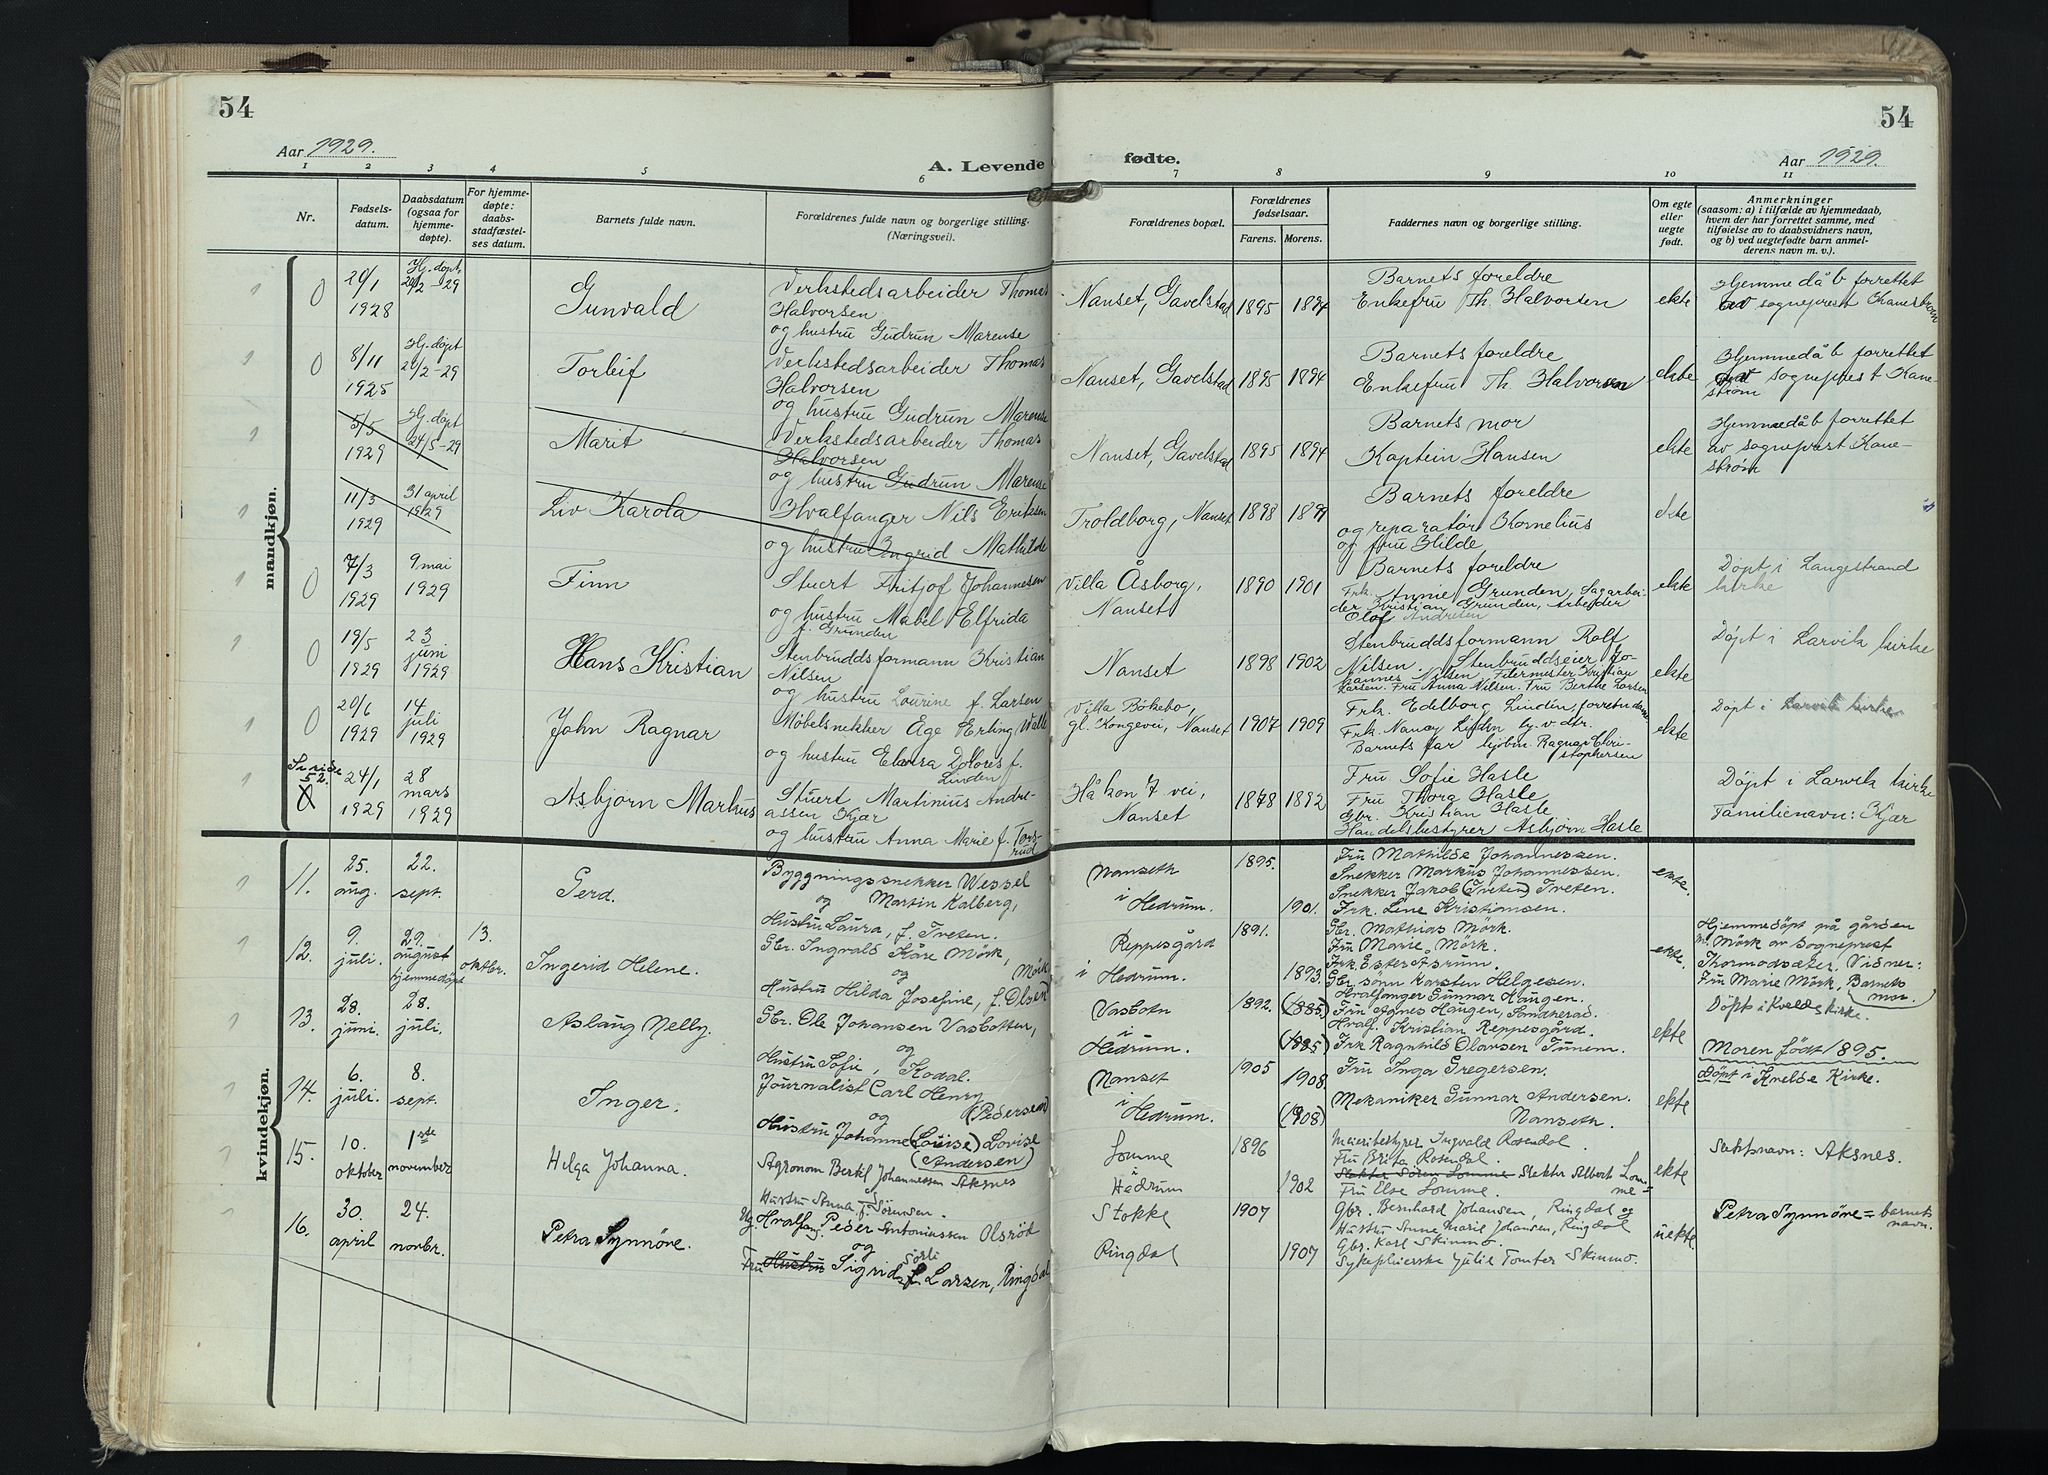 54
54
Aar 1929.
A. Levende
fødte.
Aar 1929.
1 2 3 4 5 6 7 8 9 10 11
Nr.
Fødsels-
datum.
Daabsdatum
(ogsaa for
hjemme-
døpte).
For hjemme-
døpte:
daabs-
stadfæstel-
ses datum.
Barnets fulde navn.
Forældrenes fulde navn og borgerlige stilling.
(Næringsvei).
Forældrenes bopæl.
Forældrenes
fødselsaar.
Farens. Morens.
Faddernes navn og borgerlige stilling.
Om egte
eller
uegte
født.
Anmerkninger
(saasom: a) i tilfælde av hjemmedaab,
hvem der har forrettet samme, med
tilføielse av to daabsvidners navn,
og b) ved uegtefødte barn anmel-
derens navn m. v.).
mandkjøn.
0
1928
Hj. døpt
20/2-29
Gunvald
Verkstedsarbeider Thomas
Halvorsen
og hustru Gudrun Marense
Nanset, Gavelstad
1895 1894
Barnets foreldre
Enkefru Th. Halvorsen
ekte
Hjemmedåb forrettet
av sogneprest Kanestrøm
0
8/11
1925
Hj. døpt
20/2-29
Torleif
Verkstedsarbeider Thomas
Halvorsen
og hustru Gudrun Marense
Nanset, Gavelstad
1895 1894
Barnets foreldre
Enkefru Th. Halvorsen
ekte
Hjemmedåb forrettet
av sogneprest Kane-
strøm
5/5
1929
Hj. døpt
24/5-29
Marit
Verkstedsarbeider Thomas
Halvorsen
og hustru Gudrun Marense
Nanset, Gavelstad
1895 1894
Barnets mor
Kaptein Hansen
ekte
Hjemmedåb forrettet
av sogneprest Kane-
strøm
11/3
1929
31 april
1929
Liv Karola
Hvalfanger Nils Eriksen
og hustru Ingrid Mathilde
Troldborg, Nanset
1898
Barnets foreldre
og reparatør Kornelius
og fru Hilde
ekte
0
7/3
1929
9 mai
1929
Finn
Stuert Fritjof Johannesen
og hustru Mabel Elfrida
f. Grunden
Villa Åsborg,
Nanset
1890 1901
Barnets foreldre
Frk. Annie Grunden, Sagarbei-
der Kristian Grunden, Arbeider
Olof Andresen
ekte
Døpt i Langestrand
kirke
0
19/5
1929
23
juni
1929
Hans Kristian
Stenbruddsformann Kristian
Nilsen
og hustru Lourine f. Larsen
Nanset
1898 1902
Stenbruddsformann Rolf
Nilsen. Stenbruddseier Jo-
hannes Nilsen. Filermester Kristian
Larsen. Fru Anna Nilsen. Fru Berthe Larsen
ekte
Døpt i Larvik kirke
0
20/6
1929
14
juli
1929
John Ragnar
Møbelsnekker Åge Erling Walle
og hustru Elensa Dolores f.
Linden
Villa Bøkebo,
gl. Kongevei, Nanset
1907 1909
Frk. Edelborg Linden, forretn.dame
Frk. Nancy Linden
Barnets far hjobm. Ragnar Chri-
stophersen
ekte
Døpt i Larvik kirke
Se side
52.
24/1
1929
28
mars
1929
Asbjørn Markus
Stuert Martinius Andre-
assen Kjær
og hustru Anna Marie f. Tors-
rud
Håkon 7 vei,
Nanset
1878 1892
Fru Sofie Hasle
Fru Thora Hasle
Gbr. Kristian Hasle
Handelsbestyrer Asbjørn Hasle
Døpt i Larvik kirke
Familienavn: Kjær
kvindekjøn.
11.
25.
aug.
22.
sept.
Gerd.
Byggningssnekker Wessel
og Martin Kalberg,
Hustru Laura, f. Tveten.
Nanseth
i
Hedrum.
1895.
1901.
Fru Mathilde Johannessen.
Snekker Markus Johannessen.
Snekker Jakob (Tveten) Tveten.
Frk. Line Kristiansen.
ekte.
12.
9.
juli.
29.
august
hjemmedøpt
13.
oktbr.
Ingerid Helene.
Gbr. Ingvald Kåre Mörk,
og
Hustru Hilda Josefine, f. Olsen Mörk
Reppesgård
i Hedrum.
1891.
1893.
Gbr. Mathias Mörk.
Fru Marie Mörk.
Frk. Ester Ötsrum.
Gbr sønn Karsten Helgesen.
ekte.
Hjemmedöpt på gården
Mörk av Sogneprest
Thormodsæter. Vidner:
Fru Marie Mörk, Barnets
mor.
13.
28.
juni.
28.
juli.
Aslaug Nelly.
Gbr. Ole Johansen Vasbotten,
og
Hustru Sofie, Kodal.
Vasbotn
i
Hedrum.
1892.
(1885)
(1885)
Hvalfanger Gunnar Haugen.
Fru Agnes Haugen, Sandherad.
Hvalf. Kristian Reppesgård.
Frk. Ragnhild Olausen Tunem.
ekte
Döpt i Kvelde kirke.
Moren født 1895.
14.
6.
juli.
8.
sept.
Inger.
Journalist Carl Henry
og (Pedersen)
Hustru Johanne (Louise) Lovise
(Andersen)
Nanset
i
Hedrum.
1905
1908.
(1908)
Fru Inga Gregersen.
Mekaniker Gunnar Andersen.
Nanseth.
ekte
Döpt i Kvelde Kirke.
15.
10.
oktober
1ste
november
Helga Johanna.
Agronom Bertel Johannessen Aksnes
Hustru Anna f. Sörensen.
Lomme
i
Hedrum
1896
1902
Meieribestyrer Ingvald Rosendal.
Fru Erita Rosendal.
Slekter Sören Lomme Slekter Albert Lom-
me
Fru Else Lomme.
ekte
Slektsnavn: Aksnes.
16.
30.
april
24.
novbr.
Petra Synnöve.
Ug. Hvalfang. Peder Antoniussen Olsröt
og
Fru Hustru Sigrid Sörli f. Larsen, Ringdal
Stokke
Ringdal
1907
1907
Gbr. Bernhard Johansen, Ringdal og
Hustru Anne Marie Johansen, Ringdal
Gbr. Karl Skinmo.
Sykepleierske Julie Tomter Skinmo.
uekte.
Petra Synnöve = barnets
navn.